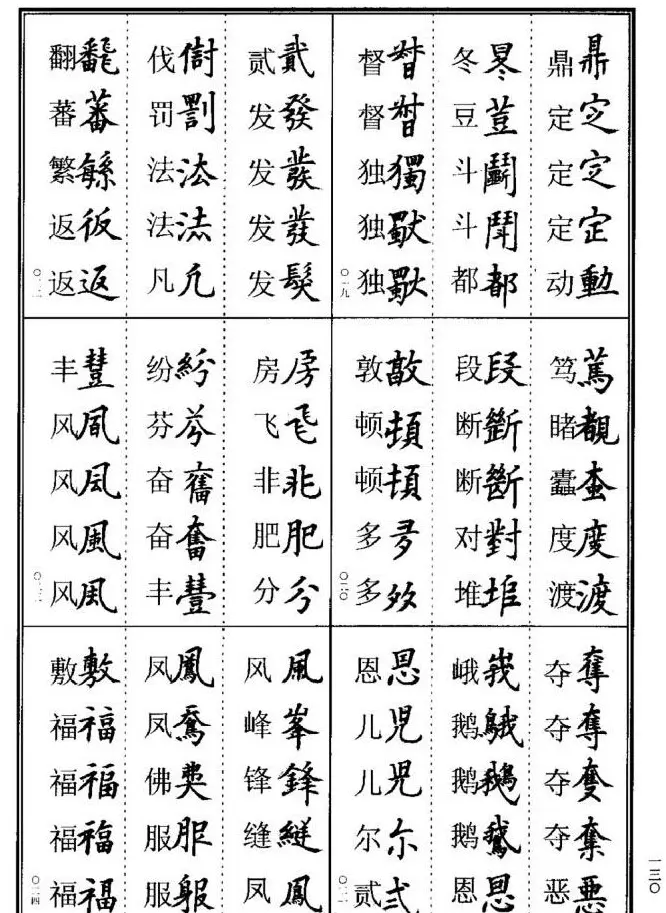 鼎鼎 定㝎 定㝎 定定 动動
冬冬 豆荳 斗鬭 斗鬥 都都
督督 督督 独獨 独獸 独獸
〇一九
笃篤 睹覩 蠹蚕 度度 渡渡
段段 断斷 断斷 对對 堆堆
敦敦 顿頓 顿頓 多多 多
〇二〇
夺奪 夺奪 夺奪 夺奪 恶悪
峨峩 鹅鵝 鹅鵝 鹅鵞 恩恩
恩恩 儿児 儿児 尔尔 贰弍
〇二一
贰貳 发發 发發 发發 发髮
伐 罚罰 法法 法法 凡凡
翻飜 蕃蕃 繁 返仮 返返
〇二二
房房 飞飛 非非 肥肥 分分
纷紛 芬芬 奋奮 奋奮 丰豐
丰豐 风風 风凨 风風 风風
〇二三
风風 峰峯 锋鋒 缝縫 凤鳳
凤鳳 凤 佛 服服 服
敷敷 福福 福福 福福 福福
〇二四
一三〇